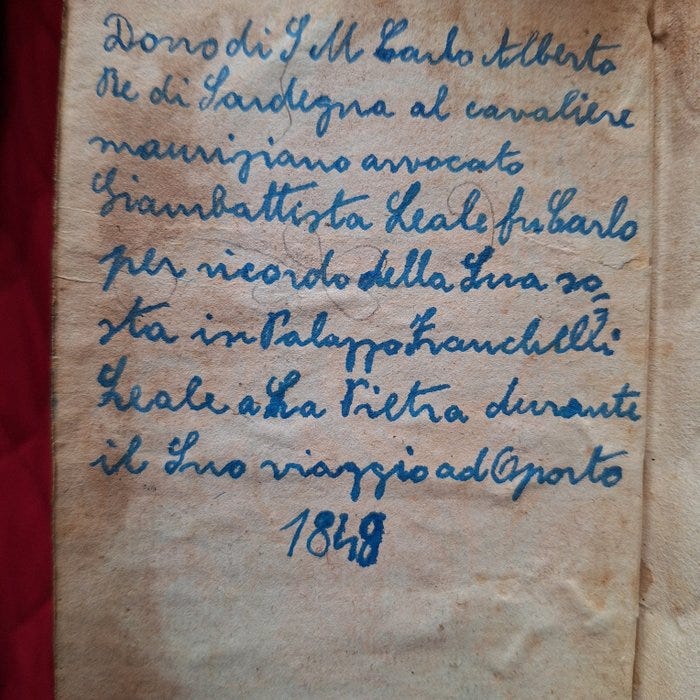 Dono di S M Carlo Alberto
Re di Sardegna al cavaliere
mauriziano avvocato
Giambattista Leale fu Carlo
per ricordo della Sua so=
sta in Palazzo Franchelli
Leale a La Pietra durante
il Suo viaggio ad Oporto
1848